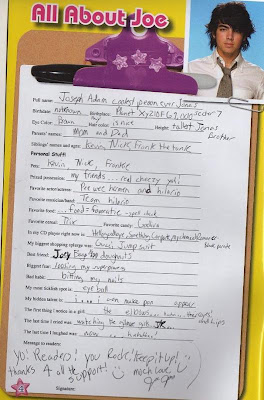 All About Joe
Full name: Joseph Adam coolest person ever Jonas
Birthdate: unknown Birthplace: Planet Xy210F69,000 Sector 7
Eye Color: Brown Hair color: is nice Height: tallest Jonas Brother
Parents' names: mom and Dad
Sibling's names and ages: Kevin, Nick, Frank the tank
Personal Stuff!
Pets: Kevin Nick, Frankie
Prized possession: my friends... real cheezy yah!
Favorite actor/actress: Pee wee herman and hilario
Favorite musician/band: Team hilario
Favorite food: ...food = favorite
Favorite cereal: Trix Favorite candy:
In my CD player right now is:
My biggest shopping splurge was: Gucci Jump suit
Best friend: Joey doughnuts
Biggest fear: loosing my superpowers
Bad habit: biting my nails
My most ticklish spot is: eye ball
My hidden talent is: i... i can make poo appear
The first thing I notice in a girl: the elbows... haha...
The last time I cried was: watching the
The last time I laughed was: now...
Message to readers:
yo! Readers! you Rock! Keep it up!
thanks 4 all the support! much love,
Signature: